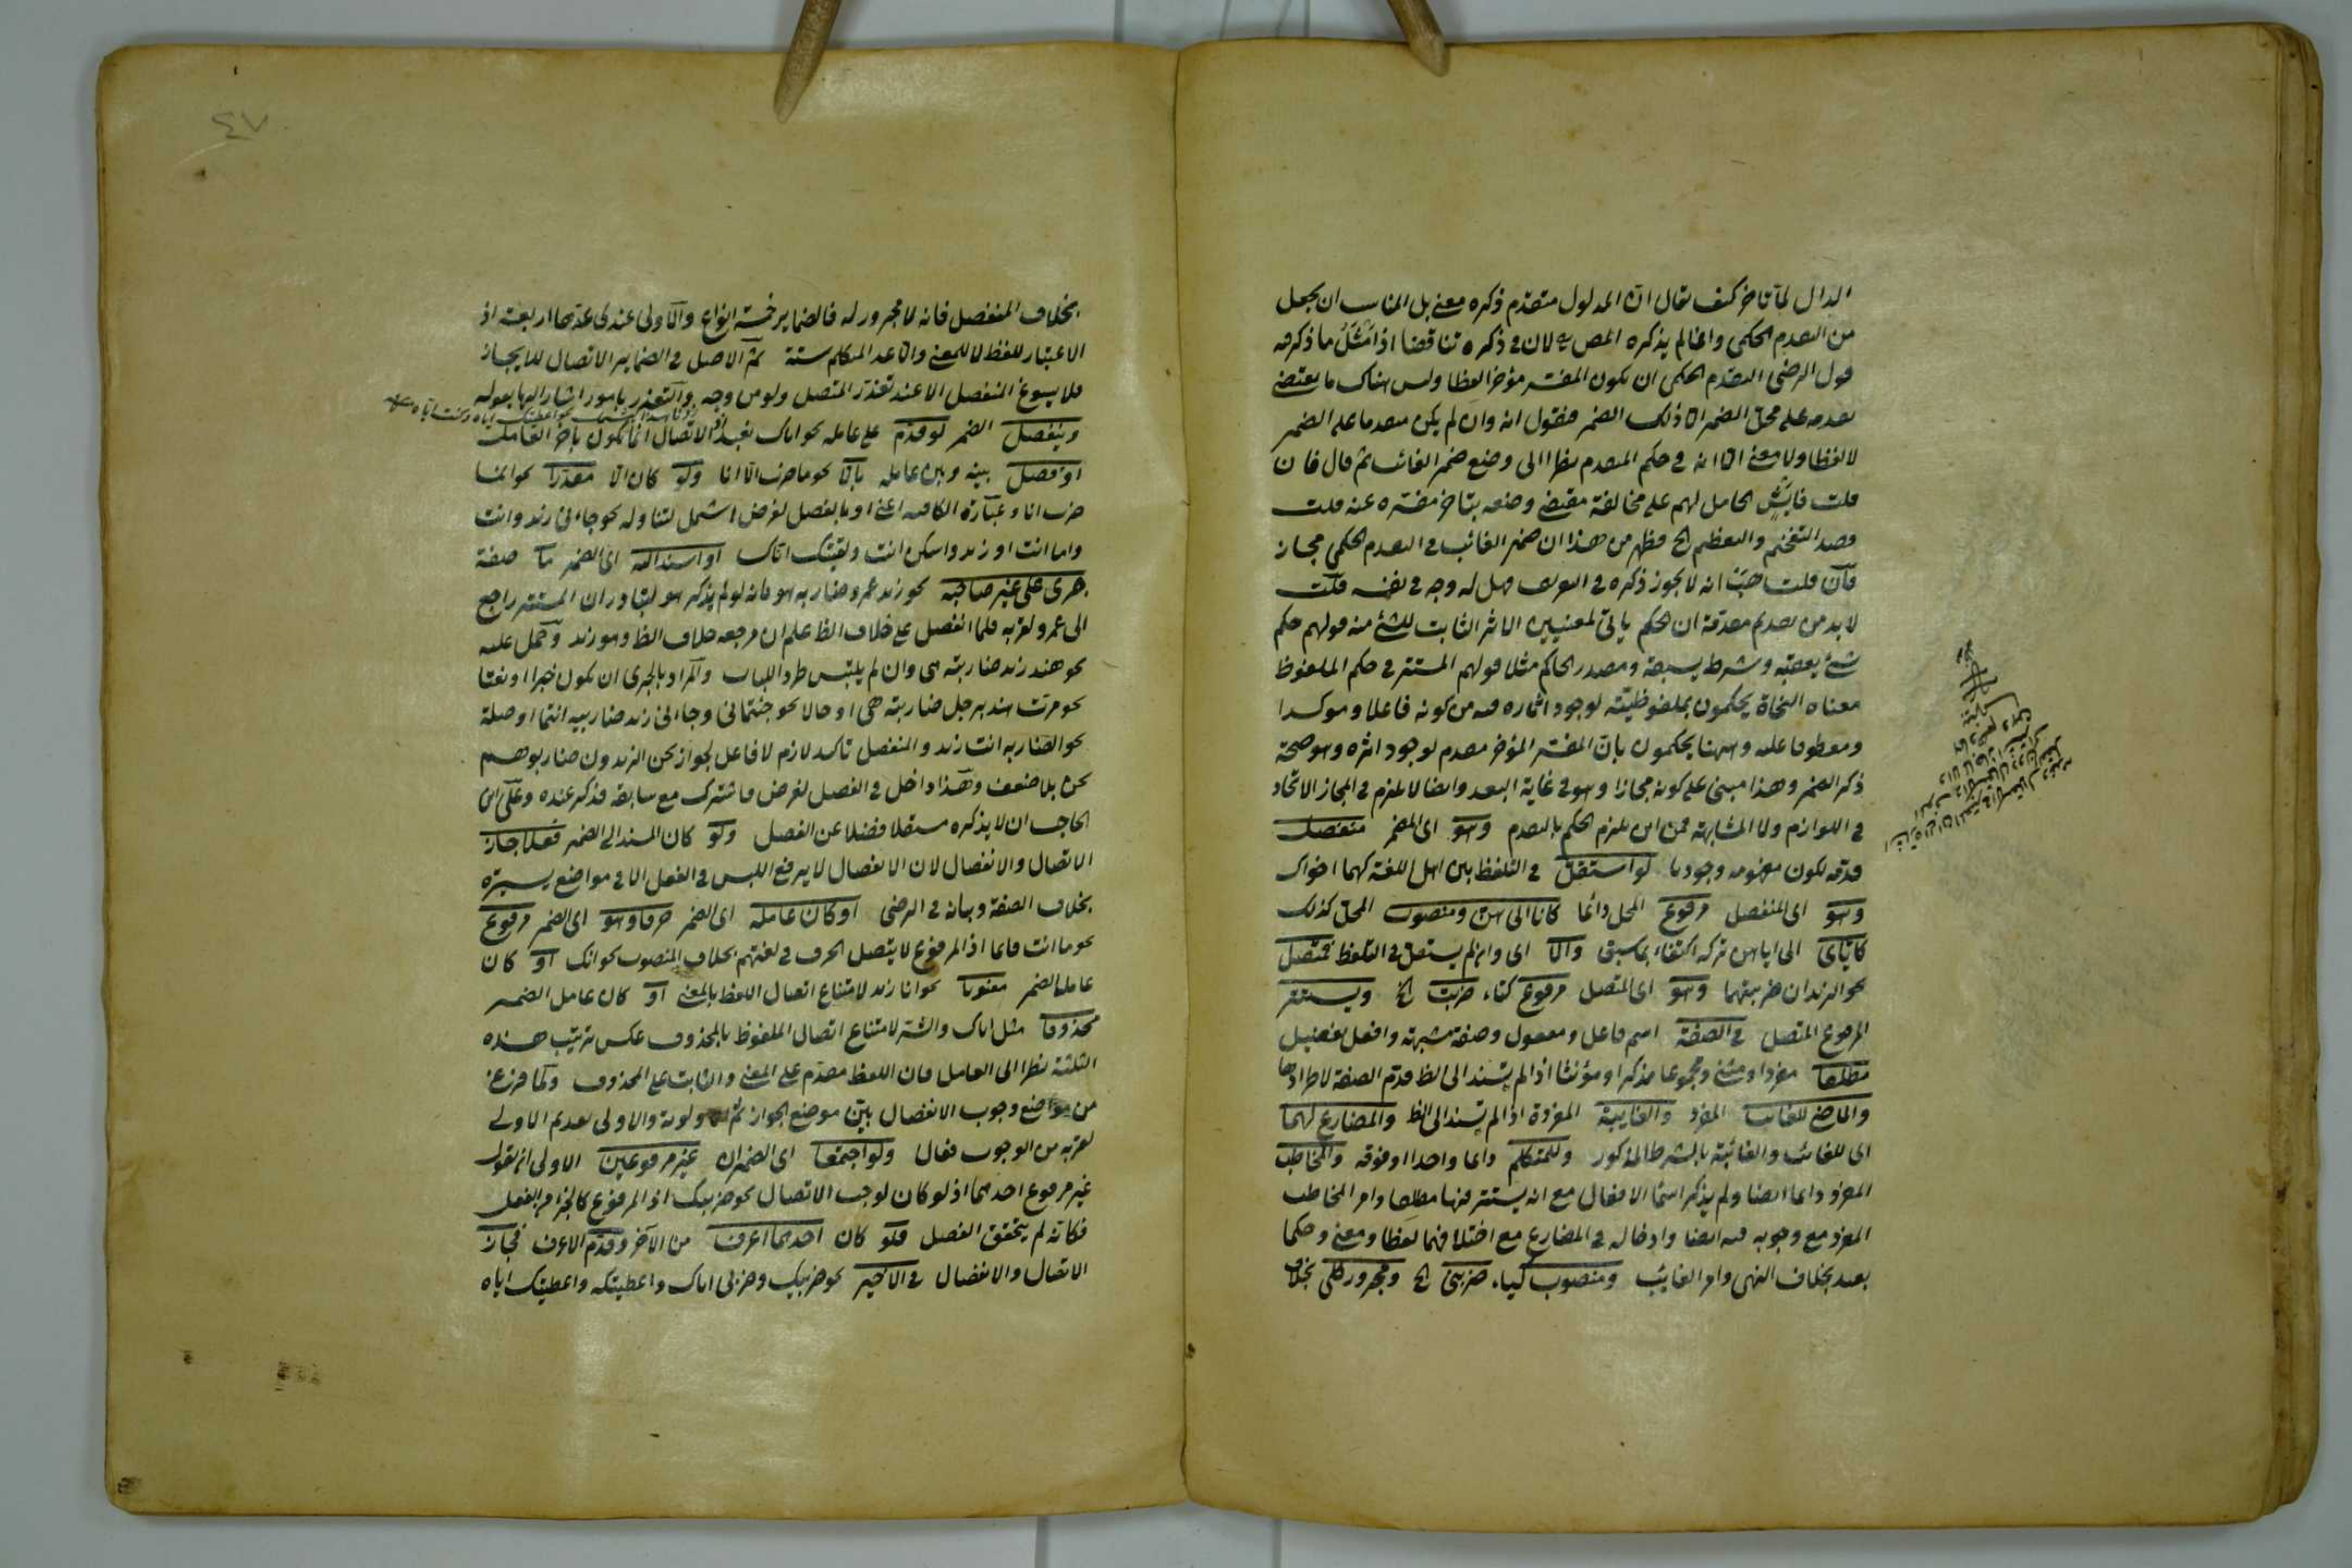 الدال لما تأخر كيف يقال ان المدلول متقدم ذكره معنى بل المناسب ان يجعل
من التقدم الحكمى وانما لم يذكره المص لان فى ذكره تناقضا اذ امثل ما ذكر فيه
قول الرضى التقدم الحكمى ان يكون المفسر مؤخر الفظا وليس هناك ما يقتضى
تقدمه على محل الضمير الا ذلك الضمير فنقول انه وان لم يكن متقدما على الضمير
لا لفظا ولا معنى الا انه فى حكم المتقدم نظرا الى وضع ضمير الغائب ثم قال فان
قلت فايش الحامل لهم على مخالفة مقتضى وضعه بتاخر مفسره عنه قلت
قصد التفخيم والتعظيم الخ فظهر من هذا ان ضمير الغائب فى التقدم الحكمى مجاز
فان قلت هب انه لا يجوز ذكره فى التعريف فهل له وجه فى نفسه قلت
لا بد من تقديم مقدمة ان الحكم ياتى لمعنيين الاثر الثابت للشئ منه قولهم حكم
شئ يعقبه وشرط يسبقه ومصدر الحاكم مثلا قولهم المستتر فى حكم الملفوظ
معناه النحاة يحكمون بملفوظيته لوجود اثاره فيه من كونه فاعلا وموكدا
ومعطوفا عليه وههنا يحكمون بان المفسر المؤخر مقدم لوجود اثره وهو صحة
ذكر الضمير وهذا مبنى على كونه مجازا وهو فى غاية البعد وايضا لا يلزم فى المجاز الاتحاد
فى اللوازم ولا المشابهة فمن اين يلزم الحكم بالتقدم وهو اى المضمر منفصل
قدمه لكون مفهومه وجوديا لو استقل فى التلفظ بين اهل اللغة كهما اخواك
وهو اى المنفصل مرفوع المحل دائما كانا الى هن ومنصوب المحل كذلك
كاياى الى اياهن تركه اكتفاء بما سبق والا اى وان لم يستقل فى التلفظ فمتصل
نحو الزيدان ضربتهما وهو اى المتصل مرفوع كتاء ضربت الخ ويستتر
المرفوع المتصل فى الصفة اسم فاعل ومفعول وصفة مشبهة وافعل تفضيل
مطلقا مفردا ومثنى ومجموعا مذكرا ومؤنثا اذا لم يسند الى الظ قدم الصفة لاطرادها
والماضى للغائب المفرد والغايبة المفردة اذا لم يسند الى الظ والمضارع لهما
اى للغائب والغائبة بالشرط المذكور وللمتكلم دائما واحدا او فوقه والمخاطب
المفرد دائما ايضا ولم يذكر اسماء الافعال مع انه يستتر فيها مطلقا وامر المخاطب
المفرد مع وجوبه فيه ايضا وادخاله فى المضارع مع اختلافهما لفظا ومعنى وحكما
بعيد بخلاف النهى وامر الغايب ومنصوب كياء ضربنى الخ ومجرور كلى بخلاف
٤٧
بخلاف المنفصل فانه لا مجرور له فالضماير خمسة انواع والاولى عندى عدتها اربعة اذ
الاعتبار للفظ لا للمعنى والا عد المتكلم ستة ثم الاصل فى الضماير الاتصال للايجاز
فلا يسوغ المنفصل الا عند تعذر المتصل ولو من وجه والتعذر بامور اشار اليها بقوله
وينفصل الضمير لو قدم على عامله نحو اياك نعبد اذ الاتصال انما يكون باخر العامل
او فصل بينه وبين عامله بالا نحو ما ضرب الا انا ولو كان الا مقدرا نحو انما
ضرب انا وعبارة الكافية اعنى او بالفصل لغرض اشمل لتناوله نحو جاءنى زيد وانت
واما انت او زيد واسكن انت ولقيتك اياك او اسند اليه اى الضمير صفة
جرى على غير صاحبه نحو زيد عمرو ضاربه هو فانه لو لم يذكر هو لتبادر ان المستتر راجع
الى عمرو لقربه فلما انفصل على خلاف الظ علم ان مرجعه خلاف الظ وهو زيد وحمل عليه
نحو هند زيد ضاربته هى وان لم يلتبس طردا للباب والمراد بالجرى ان يكون خبرا او نعتا
نحو مررت هند برجل ضاربته هى او حالا نحو جئتمانى وجاءنى زيد ضاربيه انتما او صلة
نحو الضاربه انت زيد والمنفصل تاكيد لازم لا فاعل لجواز نحن الزيدون ضاربوهم
نحن بلا ضعف وهذا داخل فى الفصل لغرض فاشترك مع سابقه فذكر عنده وعلى ابن
الحاجب ان لا يذكره مستقلا فضلا عن الفصل ولو كان المسند الى الضمير فعلا جاز
الاتصال والانفصال لان الانفصال لا يرفع اللبس فى الفعل الا فى مواضع يسيرة
بخلاف الصفة وبيانه فى الرضى او كان عامله اى الضمير حرفا وهو اى الضمير مرفوع
نحو ما انت قائما اذ المرفوع لا يتصل الحرف فى لغتهم بخلاف المنصوب نحو انك او كان
عامل الضمير معنويا نحو انا زيد لامتناع اتصال اللفظ بالمعنى او كان عامل الضمير
محذوفا مثل اياك والشر لامتناع اتصال الملفوظ بالمحذوف عكس ترتيب هذه
الثلثة نظرا الى العامل فان اللفظ مقدم على المعنى والثابت على المحذوف ولما فرغ
من مواضع وجوب الانفصال بين موضع الجواز ثم الاولوية والاولى تقديم الاولى
لقربه من الوجوب فقال ولو اجتمعا اى الضميران غير مرفوعين الاولى ان يقول
غير مرفوع احدهما اذ لو كان لوجب الاتصال نحو ضربتك اذ المرفوع كالجزء من الفعل
فكانه لم يتحقق الفصل فلو كان احدهما اعرف من الاخر وقدم الاعرف فجاز
الاتصال والانفصال فى الاخير نحو ضربيك وضربى اياك واعطيتكه واعطيتك اياه